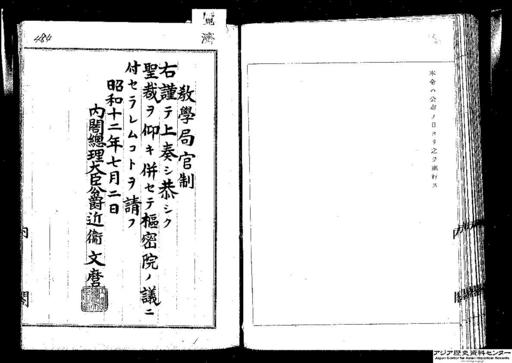 本令ハ公布ノ日ヨリ之ヲ施行ス
覧濟
484
教學局官制
右謹テ上奏シ恭シク
聖裁ヲ仰キ併セテ樞密院ノ議ニ
付セラレムコトヲ請フ
昭和十二年七月二日
内閣總理大臣公爵近衞文麿
内閣
アジア歴史資料センター
Japan Center for Asian Historical Records